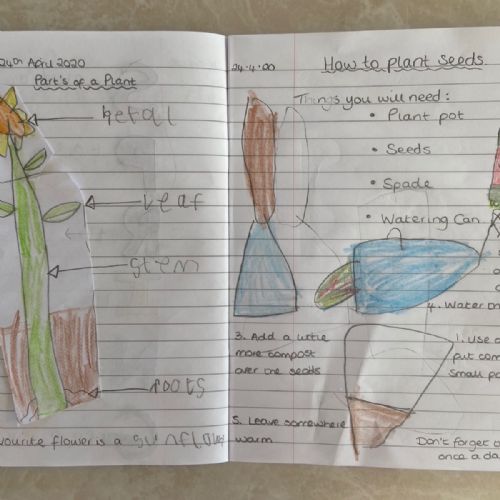 24th April 2020
Part's of a Plant
Petal
Leaf
stem
roots
flower is a sunflow
24.4.20
How to plant seeds
Things you will need:
• Plant pot
• Seeds
• Spade
• Watering Can
4. Water
3. Add a little
more compost
over the seeds
1. Use a
put com
small po
5. Leave somewhere
warm
Don't forget
once a da